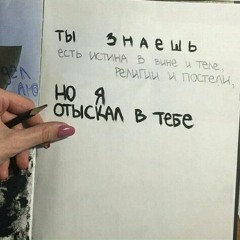 ты знаешь
есть истина в вине и теле,
религии и постели,
но я
отыскал в тебе